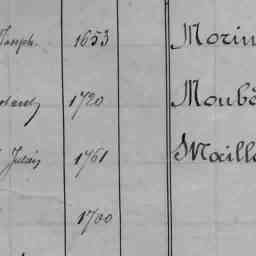 Joseph. 1653 Morin
1720 Moubè
Julien 1761 Maill
1700